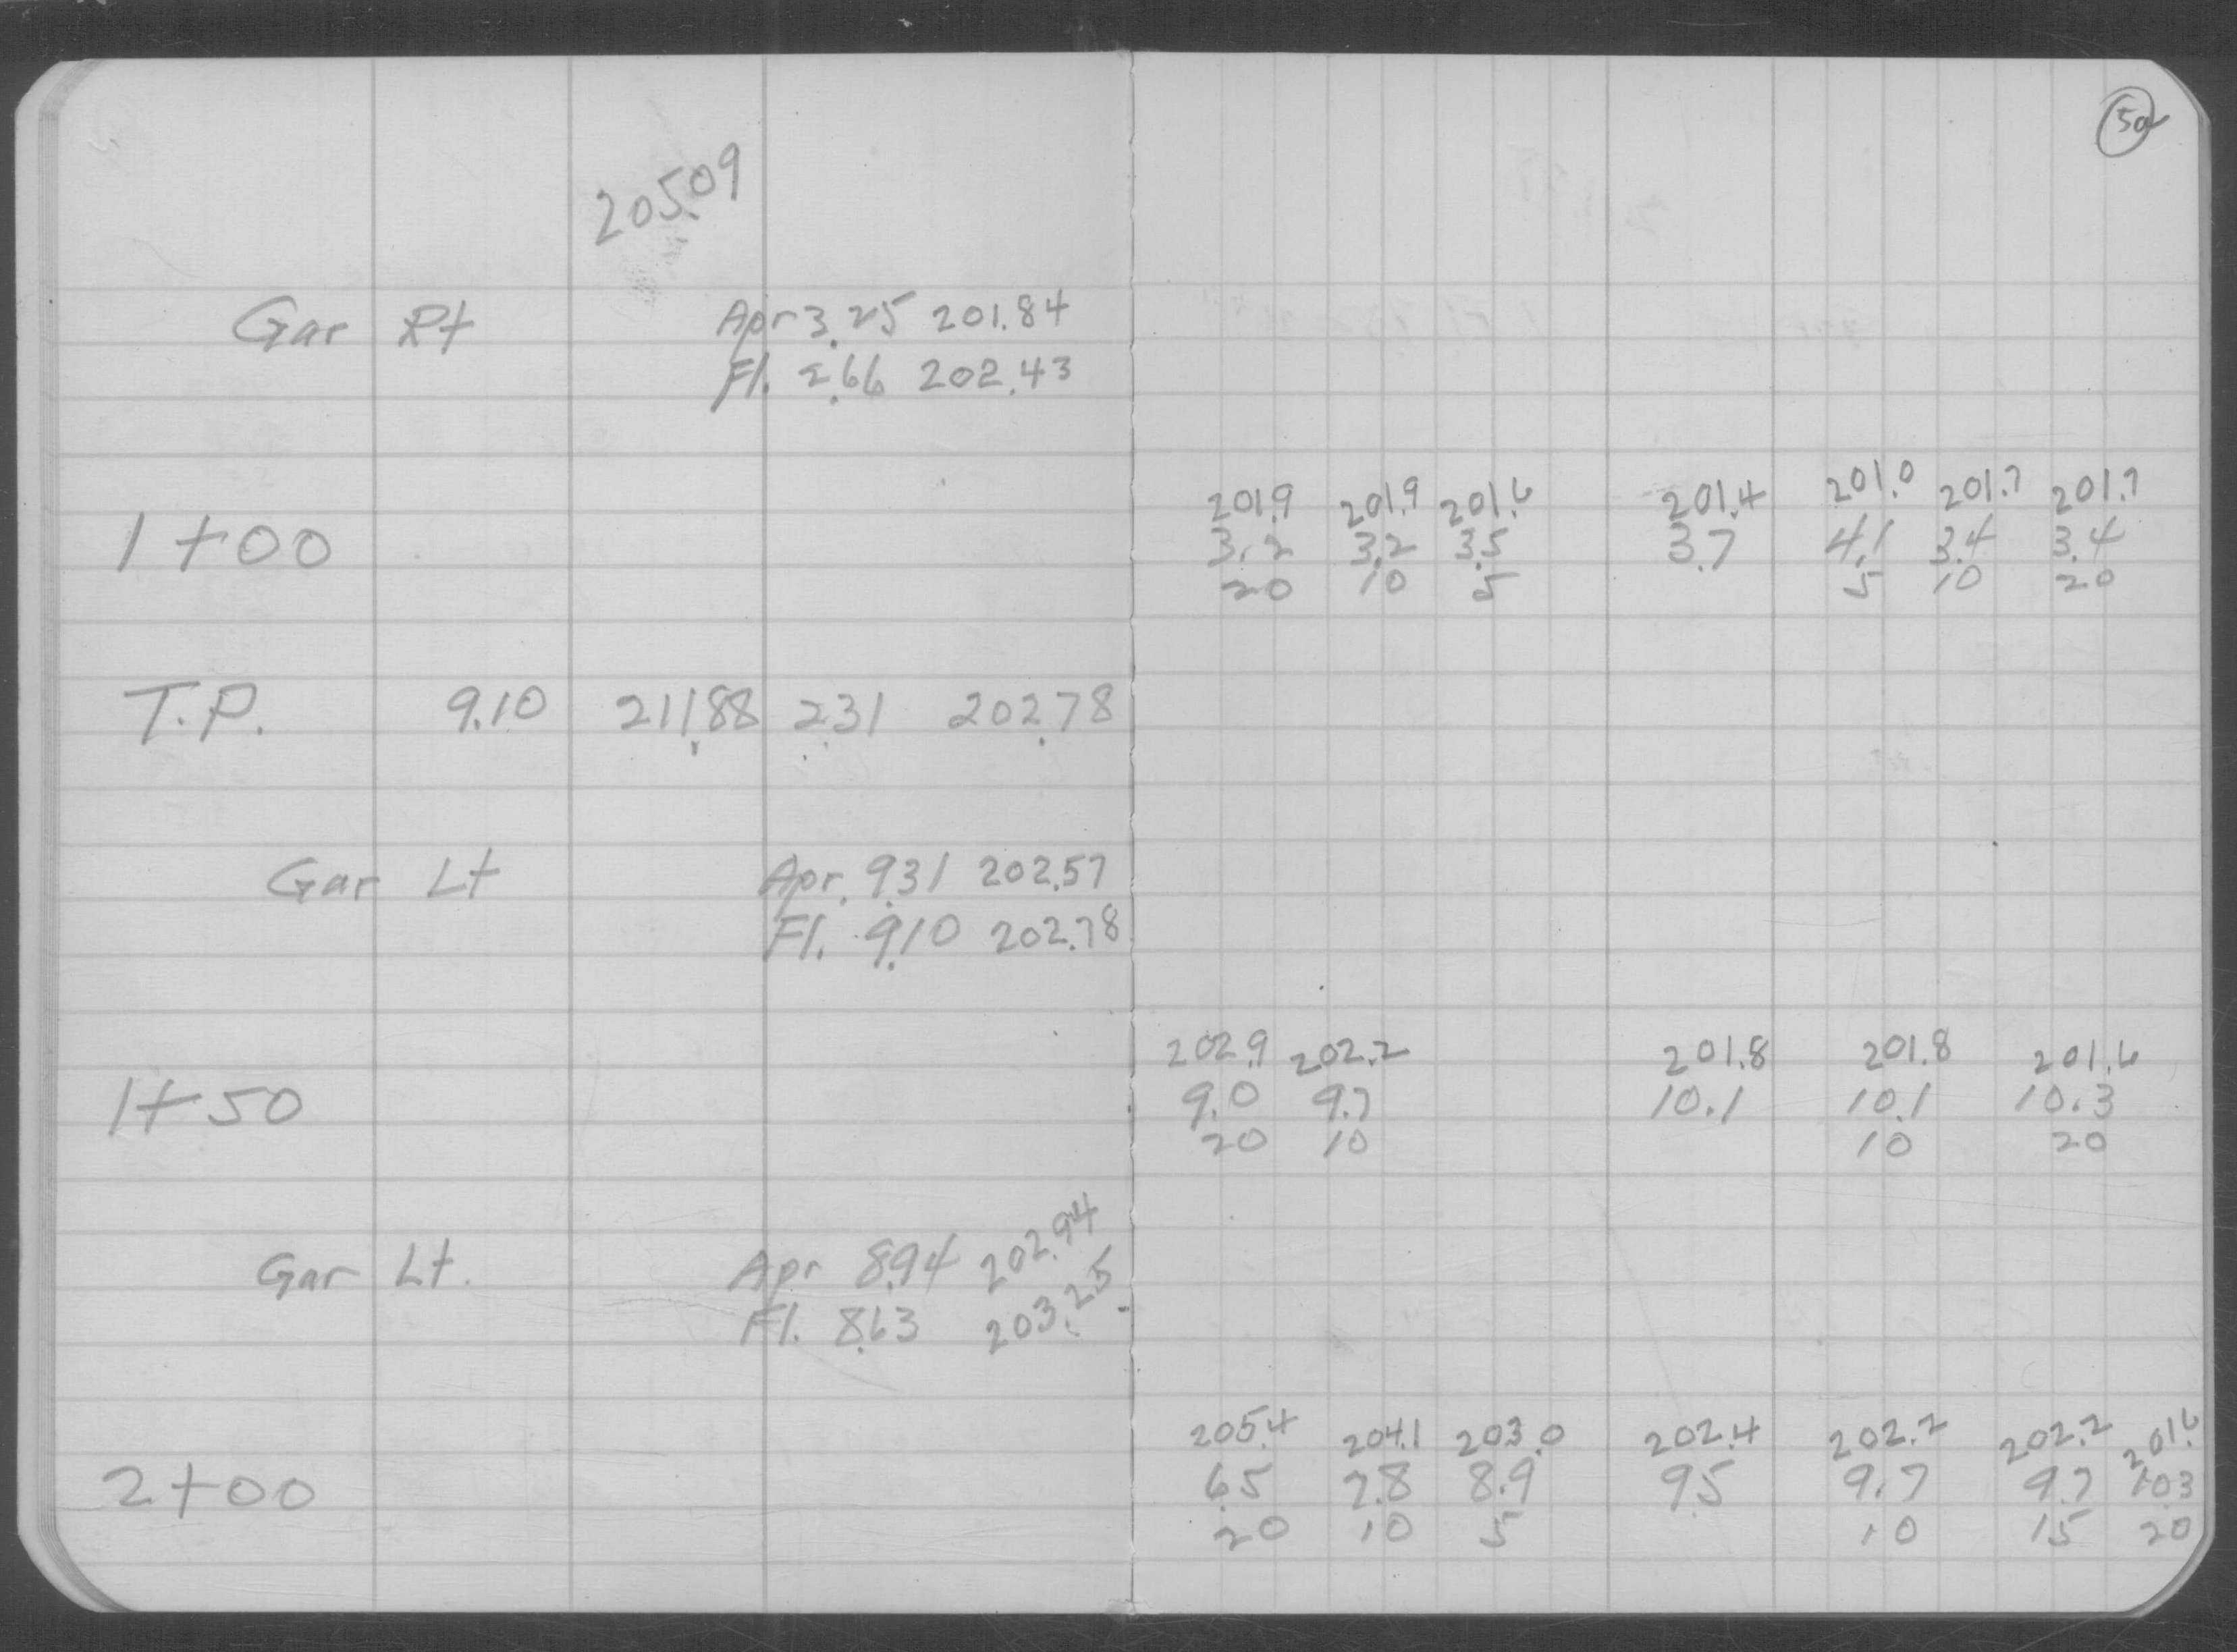 50
205.09
Gar Rt Apr 3.25 201.84
Fl. 2.66 202.43
201.9 201.9 201.6 201.4 201.0 201.7 201.7
1+00 3.2 3.2 3.5 3.7 4.1 3.4 3.4
20 10 5 5 10 20
T.P. 9.10 211.88 2.31 202.78
Gar Lt Apr. 9.31 202.57
Fl. 9.10 202.78
202.9 202.2 201.8 201.8 201.6
1+50 9.0 9.7 10.1 10.1 10.3
20 10 10 20
Gar Lt. Apr 8.94 202.94
Fl. 8.63 203.25
205.4 204.1 203.0 202.4 202.2 202.2 201.6
2+00 6.5 7.8 8.9 9.5 9.7 9.7 10.3
20 10 5 10 15 20